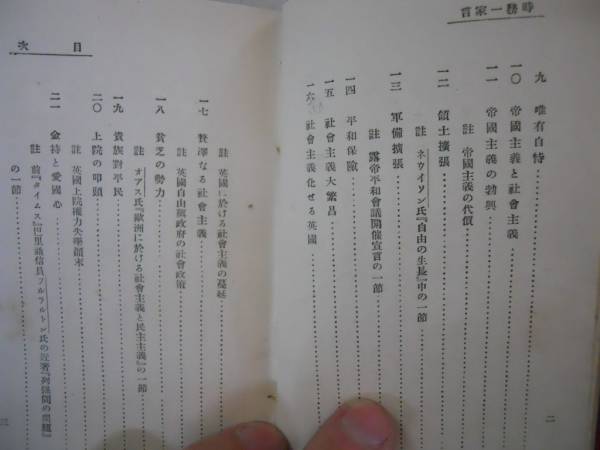 時務一家言
九 唯有自恃
一〇 帝國主義と社會主義
一一 帝國主義の勃興
註 帝國主義の代價
一二 領土擴張
註 ネウインソン氏『自由の生長』中の一節
一三 軍備擴張
註 露帝平和會議開催宣言の一節
一四 平和保險
一五 社會主義大繁昌
一六 社會主義化せる英國
二
目次
註 英國に於ける社會主義の蔓延
一七 贅澤なる社會主義
註 英國自由黨政府の社會政策
一八 貧乏の勢力
註 オアス氏『歐洲に於ける社會主義と民主主義』の一節
一九 貴族對平民
二〇 上院の叩頭
註 英國上院權力失墜顚末
二一 金持と愛國心
註 前『タイムス』巴里通信員フルツルトン氏の近著『列強間の問題』
の一節
三